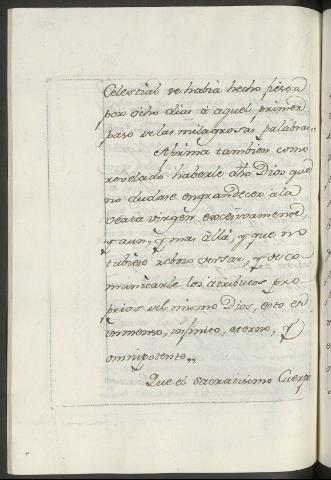 Celestial se habia hecho fiesta
por ocho dias à aquel primer
paso de las milagrosas palabras,,
Afirma tambien como
revelado haberle dho Dios que
no dudase engrandecer a la
Veata virgen excesivamente,
y aun, y mas állá, y que no
tubiese reboso cesar, y se co-
municarle los atributos pro-
prios del mismo Dios, esto es
inmenso, infinito, eterno, y
omnipotente,,
Que el sacratisimo Cuerpo